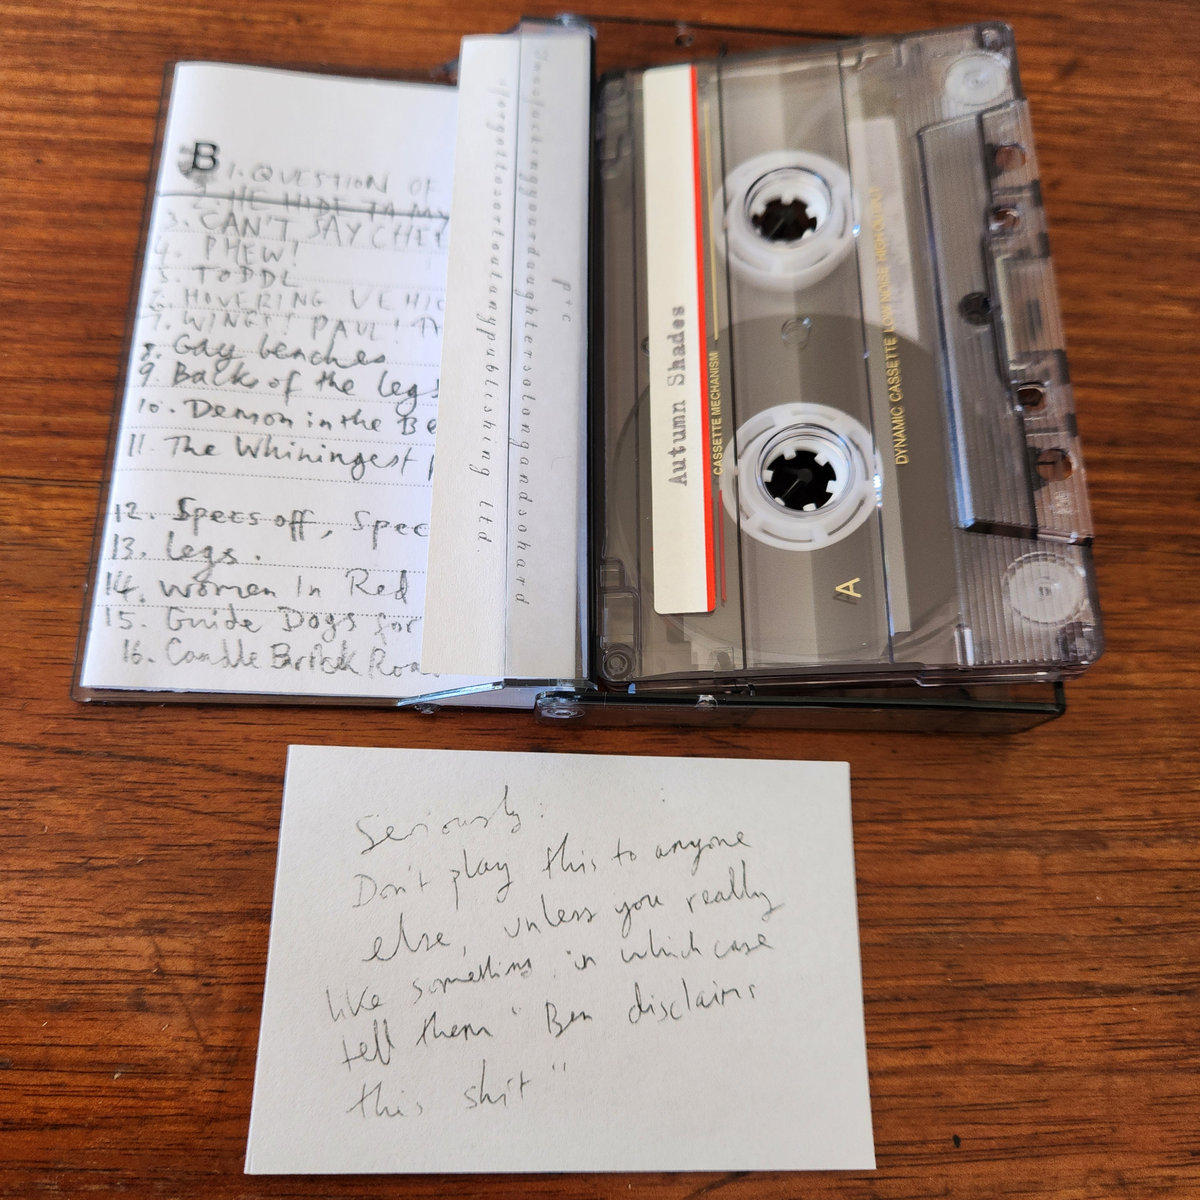 B
1. QUESTION OF
2. HE HIDE TA MY
3. CAN'T SAY CHEE
4. PHEW!
5. TODDL
6. HOVERING VEHIC
7. WINGS! PAUL!
8. Gay beaches
9. Back of the legs
10. Demon in the Be
11. The Whiningest
12. Specs off, Spec
13. Legs.
14. Women In Red
15. Guide Dogs for
16. Candle Barback Roa
p + c
Autumn Shades
CASSETTE MECHANISM
DYNAMIC CASSETTE LOW NOISE HIGH OUTPUT
A
Seriously:
Don't play this to anyone
else, unless you really
like something in which case
tell them "Ben disclaims
this shit"